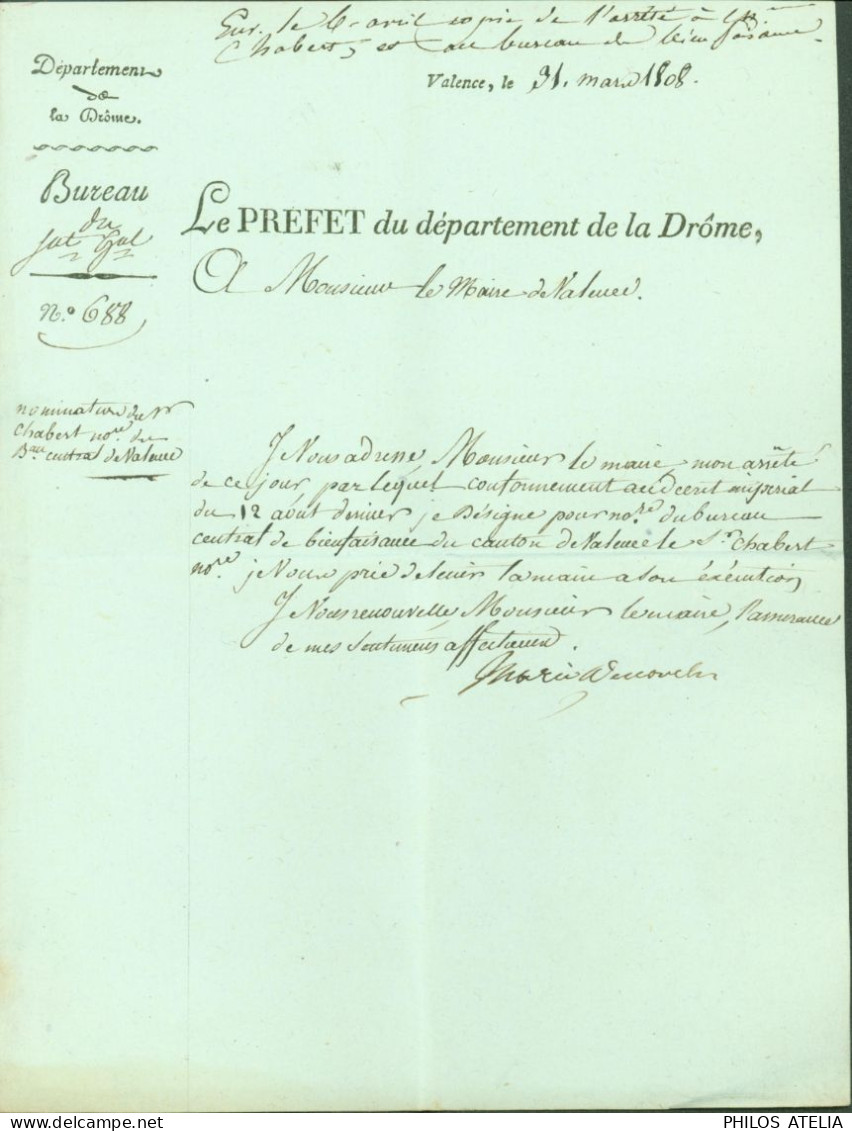 Env. le 6 avril copie de l'arrêté à Mr.
Chabert, et au bureau de bienfaisance.
Département
de
la Drôme.
Valence, le 31. mars 1808.
Bureau
du
N.º 688
Le PRÉFET du département de la Drôme,
A Monsieur le Maire de Valence.
nomination du Sr
Chabert nore. du
Bau central de Valence
Je Vous adresse, Monsieur le maire, mon arrêté
de ce jour par lequel conformement au decret imperial
du 12 août dernier je Désigne pour nore. du bureau
central de bienfaisance du canton de Valence le Sr. Chabert
nore. je Vous prie de tenir la main a son éxécution,
Je Vous renouvelle Monsieur le maire, l'assurance
de mes Sentimens affectueux.
Marie Descorches
PHILOS ATELIA